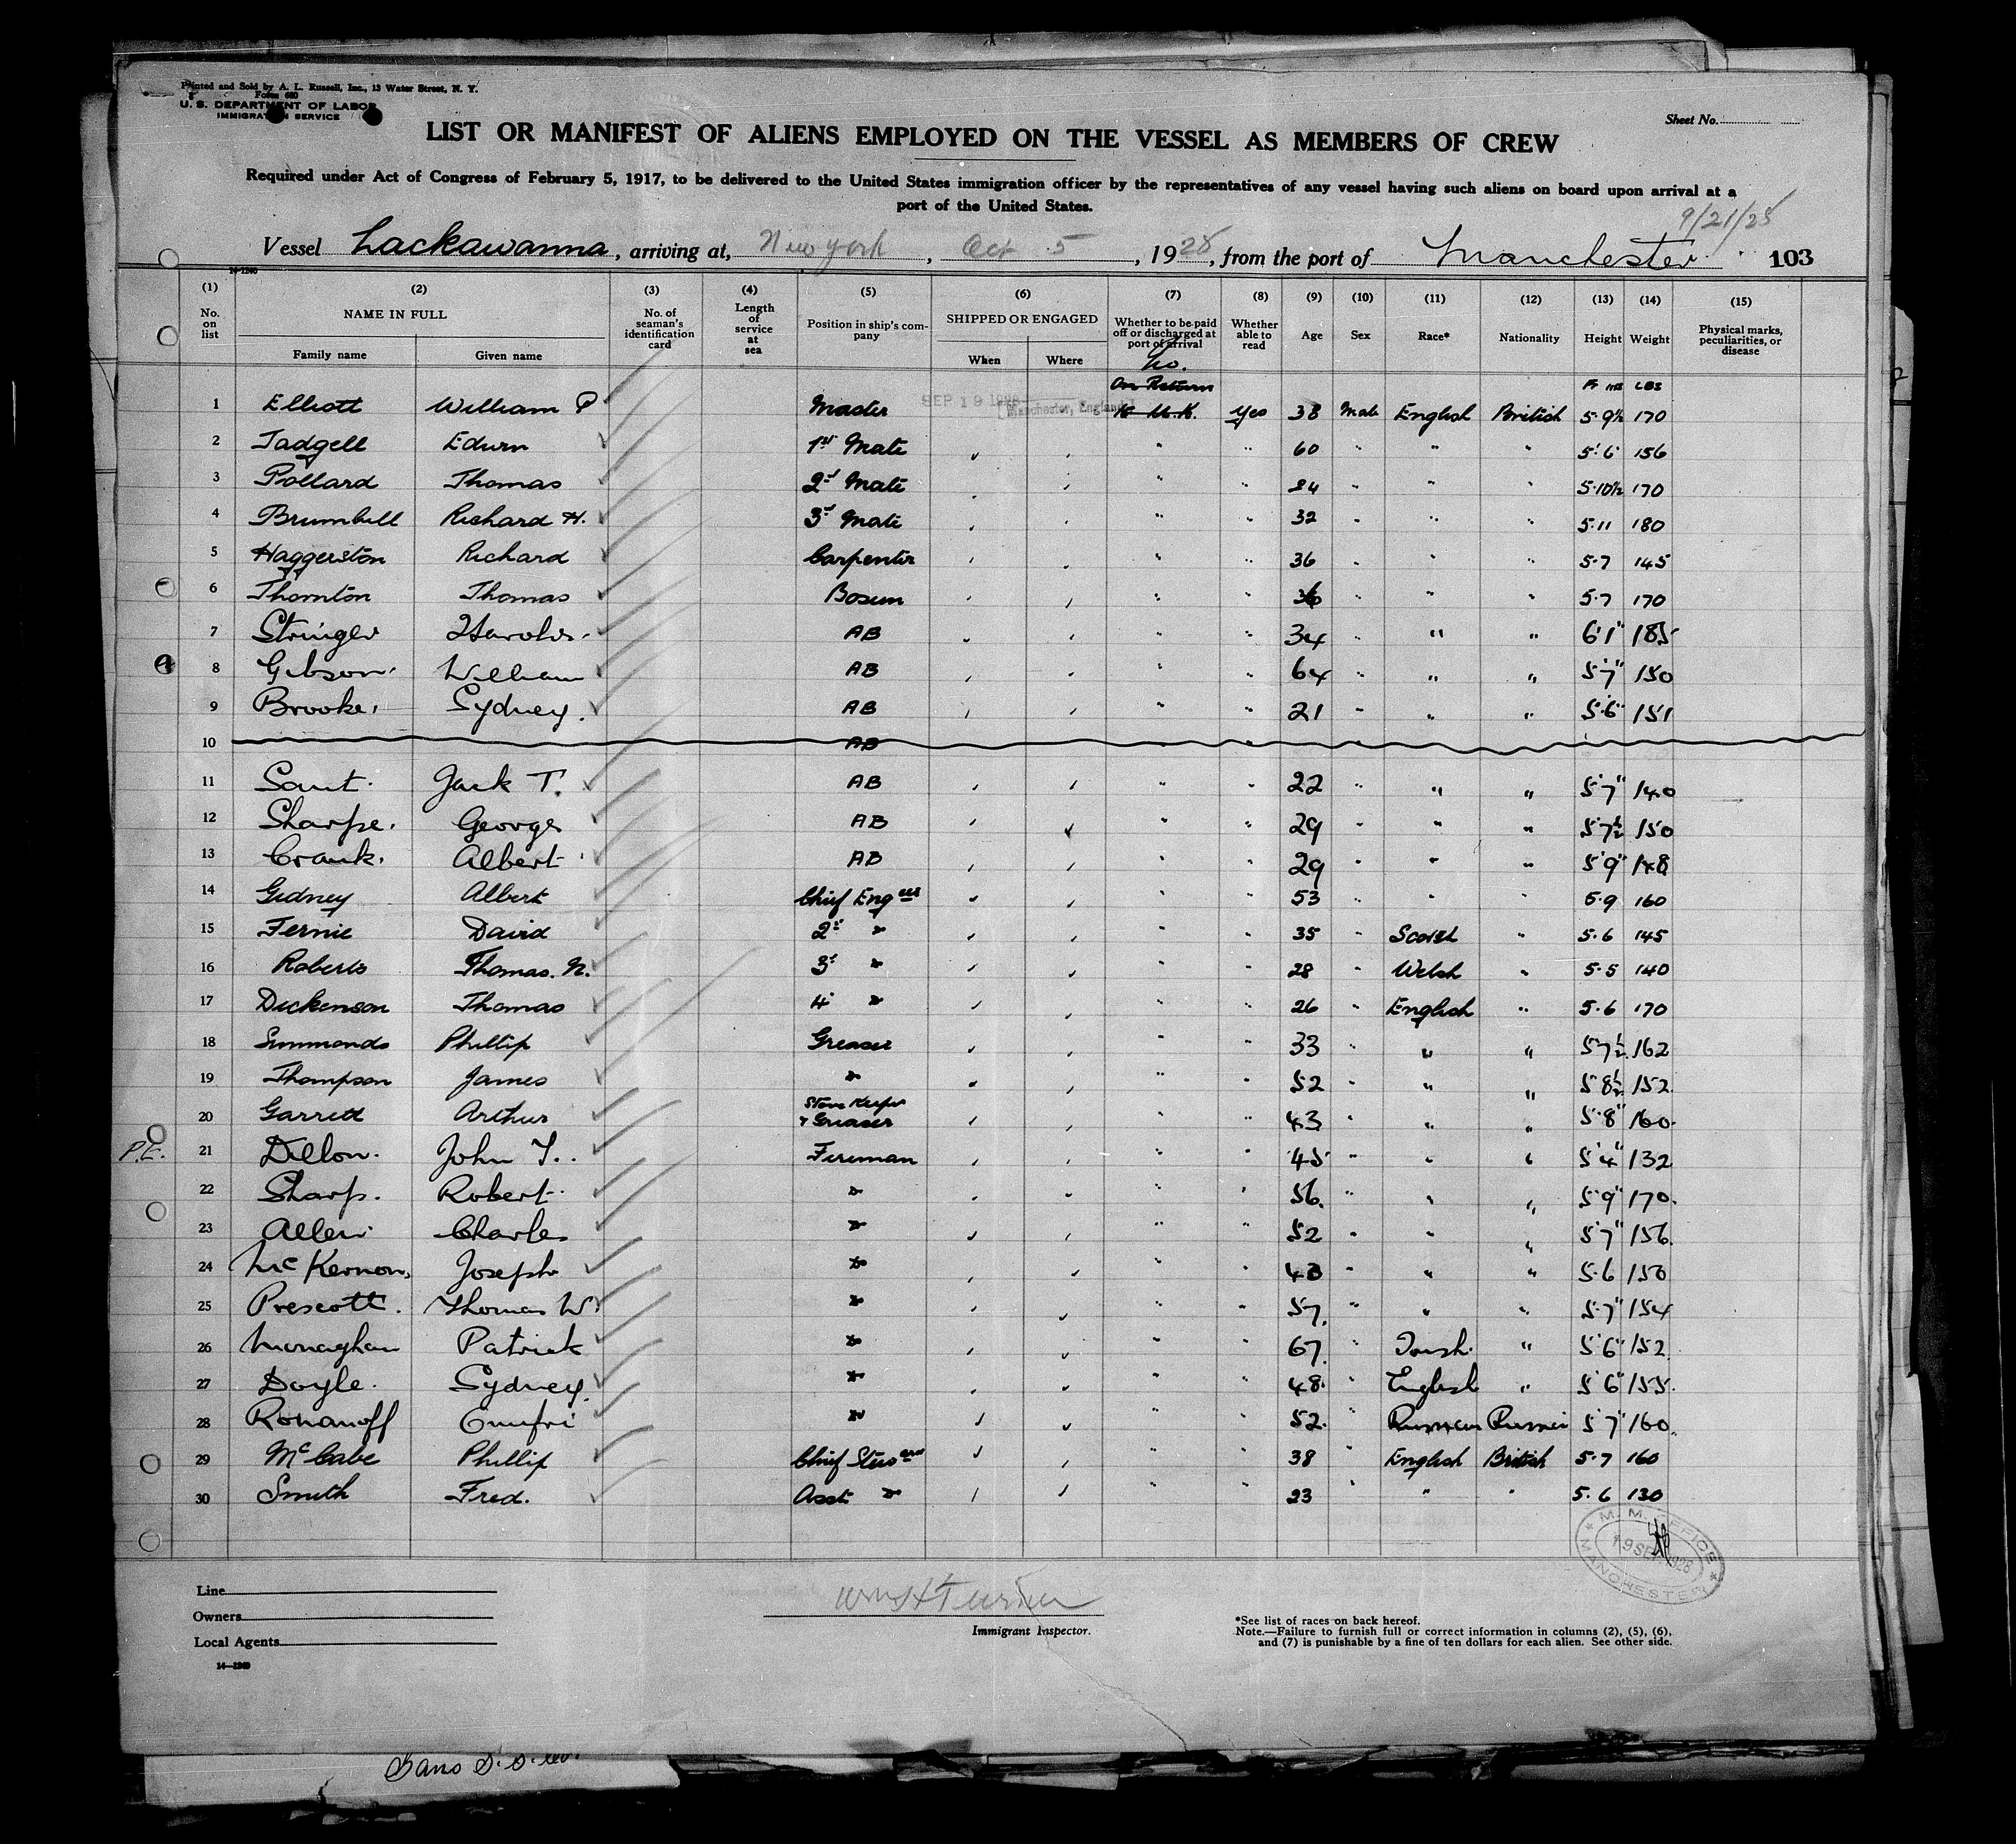 Printed and Sold by A. L. Russell, Inc., 13 Water Street, N. Y.
Form 680
U. S. DEPARTMENT OF LABOR
IMMIGRATION SERVICE
Sheet No.
LIST OR MANIFEST OF ALIENS EMPLOYED ON THE VESSEL AS MEMBERS OF CREW
Required under Act of Congress of February 5, 1917, to be delivered to the United States immigration officer by the representatives of any vessel having such aliens on board upon arrival at a
port of the United States.
9/21/28
Vessel Lackawanna, arriving at, New York, Oct 5, 1928, from the port of Manchester 103
14-1240
(1) (2) (3) (4) (5) (6) (7) (8) (9) (10) (11) (12) (13) (14) (15)
No. on list NAME IN FULL No. of seaman's identification card Length of service at sea Position in ship's company SHIPPED OR ENGAGED Whether to be paid off or discharged at port of arrival Whether able to read Age Sex Race* Nationality Height Weight Physical marks, peculiarities, or disease
Family name Given name When Where
No.
On Return Ft ins LBS
1 Elliott William P Master SEP 19 1928 Manchester, England to U.K. Yes 38 Male English British 5-9½ 170
2 Tadgell Edwin 1st Mate " " 60 " " " 5'6" 156
3 Pollard Thomas 2d Mate " " 24 " " " 5-10½ 170
4 Brumhill Richard H. 3d Mate " " 32 " " " 5-11 180
5 Haggerston Richard Carpenter " " 36 " " " 5-7 145
6 Thornton Thomas Bosun " " 36 " " " 5-7 170
7 Stringer Harold AB " " 34 " " " 6'1" 185
8 Gibson William AB " " 64 " " " 5'7" 150
9 Brooke Sydney. AB " " 21 " " " 5'6" 151
10 AB
11 Sant Jack T. AB " " 22 " " " 5'7" 140
12 Sharpe George AB " " 29 " " " 5'7½ 150
13 Crank Albert AB " " 29 " " " 5'9" 148
14 Gidney Albert Chief Engeer " " 53 " " " 5-9 160
15 Fernie David 2d " " " 35 " Scotch " 5-6 145
16 Roberts Thomas. N. 3d " " " 28 " Welsh " 5-5 140
17 Dickenson Thomas 4 " " " 26 " English " 5-6 170
18 Simmonds Phillip Greaser " " 33 " " " 5'7½ 162
19 Thompson James " " " 52 " " " 5 8½ 152
20 Garrett Arthur Store Keeper & Greaser " " 43 " " " 5'8" 160
P.E. 21 Dillon John T. Fireman " " 45 " " " 5'4" 132
22 Sharp. Robert " " " 56. " " " 5'9" 170.
23 Allen Charles " " " 52 " " " 5'7" 156.
24 McKernon Joseph " " " 43 " " " 5-6 150
25 Prescott. Thomas W. " " " 57. " " " 5-7" 154
26 Monaghan Patrick " " " 67. " Irish " 5'6" 152
27 Doyle. Sydney. " " " 48. " English " 5'6" 155.
28 Romanoff " " " 52. " Russian Russia 5'7" 160.
29 McCabe Phillip Chief Steward " " 38 " English British 5-7 160
30 Smith Fred. Asst " " " 23 " " " 5-6 130
M. M. OFFICE
19 SEP 1928
MANCHESTER
Line
Owners
Local Agents
14—1240
Immigrant Inspector.
*See list of races on back hereof.
Note.—Failure to furnish full or correct information in columns (2), (5), (6),
and (7) is punishable by a fine of ten dollars for each alien. See other side.